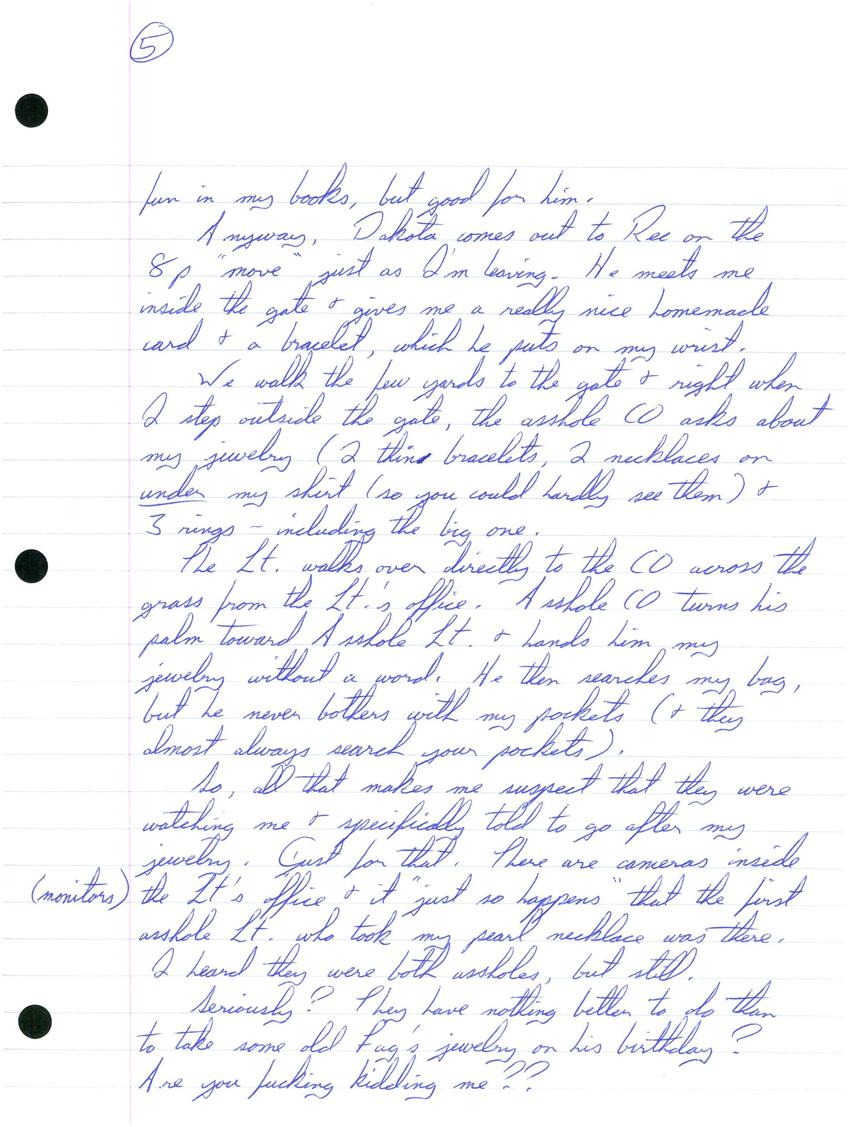 5
fun in my books, but good for him.
Anyway, Dakota comes out to Rec on the
8p "move" just as I'm leaving. He meets me
inside the gate & gives me a really nice homemade
card & a bracelet, which he puts on my wrist.
We walk the few yards to the gate & right when
I step outside the gate, the asshole CO asks about
my jewelry (2 thin bracelets, 2 necklaces on
under my shirt (so you could hardly see them) &
3 rings - including the big one.
The Lt. walks over directly to the CO across the
grass from the Lt.'s office. Asshole CO turns his
palm toward Asshole Lt. & hands him my
jewelry without a word. He then searches my bag,
but he never bothers with my pockets (& they
almost always search your pockets).
So, all that makes me suspect that they were
watching me & specifically told to go after my
jewelry. Just for that. There are cameras inside
(monitors) the Lt's office & it "just so happens" that the first
asshole Lt. who took my pearl necklace was there.
I heard they were both assholes, but still.
Seriously? They have nothing better to do than
to take some old Fag's jewelry on his birthday?
Are you fucking kidding me??